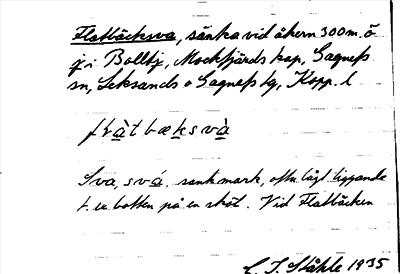 Flatbäcksva, sänka vid åkern 300 m. ö
j i Bolltj, Mockfjärds kap, Gagnefs
sn, Leksands o Gagnefs tg, Kopp. l
flàtbæksvà
Sva, svá, sankmark, ofta lågt liggande
t. ex. botten på en sköt. Vid Flatbäcken
C. I. Ståhle 1935